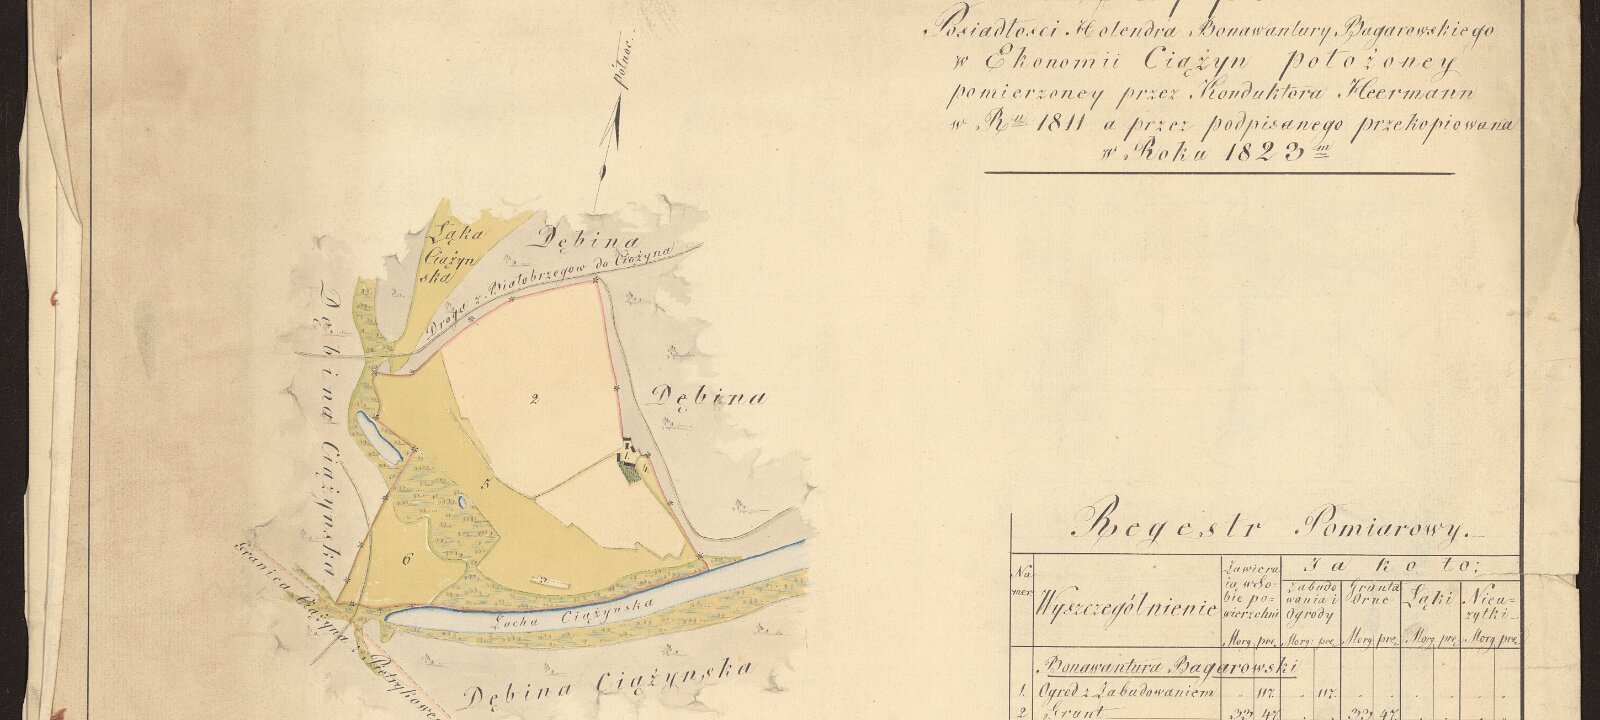 Posiadłości Holendra Bonawantury Bagarowskiego
w Ekonomii Ciążyn położoney
pomierzoney przez Konduktora Heermann
w Ru 1811 a przez podpisanego przekopiowana
w Roku 1823 m
północ
Łąka
Ciążyn
ska
Dębina
Droga z Białobrzegow do Ciążyna
Dębina Ciążynska
2
Dębina
1
4
5
6
3
Łacha Ciążynska
Granica Ciążyna
Pietrykowem
Dębina Ciążynska
Regestr Pomiarowy.
Nu
mer
Wyszczególnienie
Zawiera
ią w So-
bie po-
wierzchni
Jako to;
Zabudo
wania i
Ogrody
Grunta
Orne
Łąki
Nieu-
żytki
Morg pre. Morg: pre. Morg pre. Morg pre. Morg pre.
Bonawantura Bagarowski
1. Ogrod z Zabudowaniem . 117. . 117. . . . . . .
2 Grunt 33 47 . . 33 47 . . . .